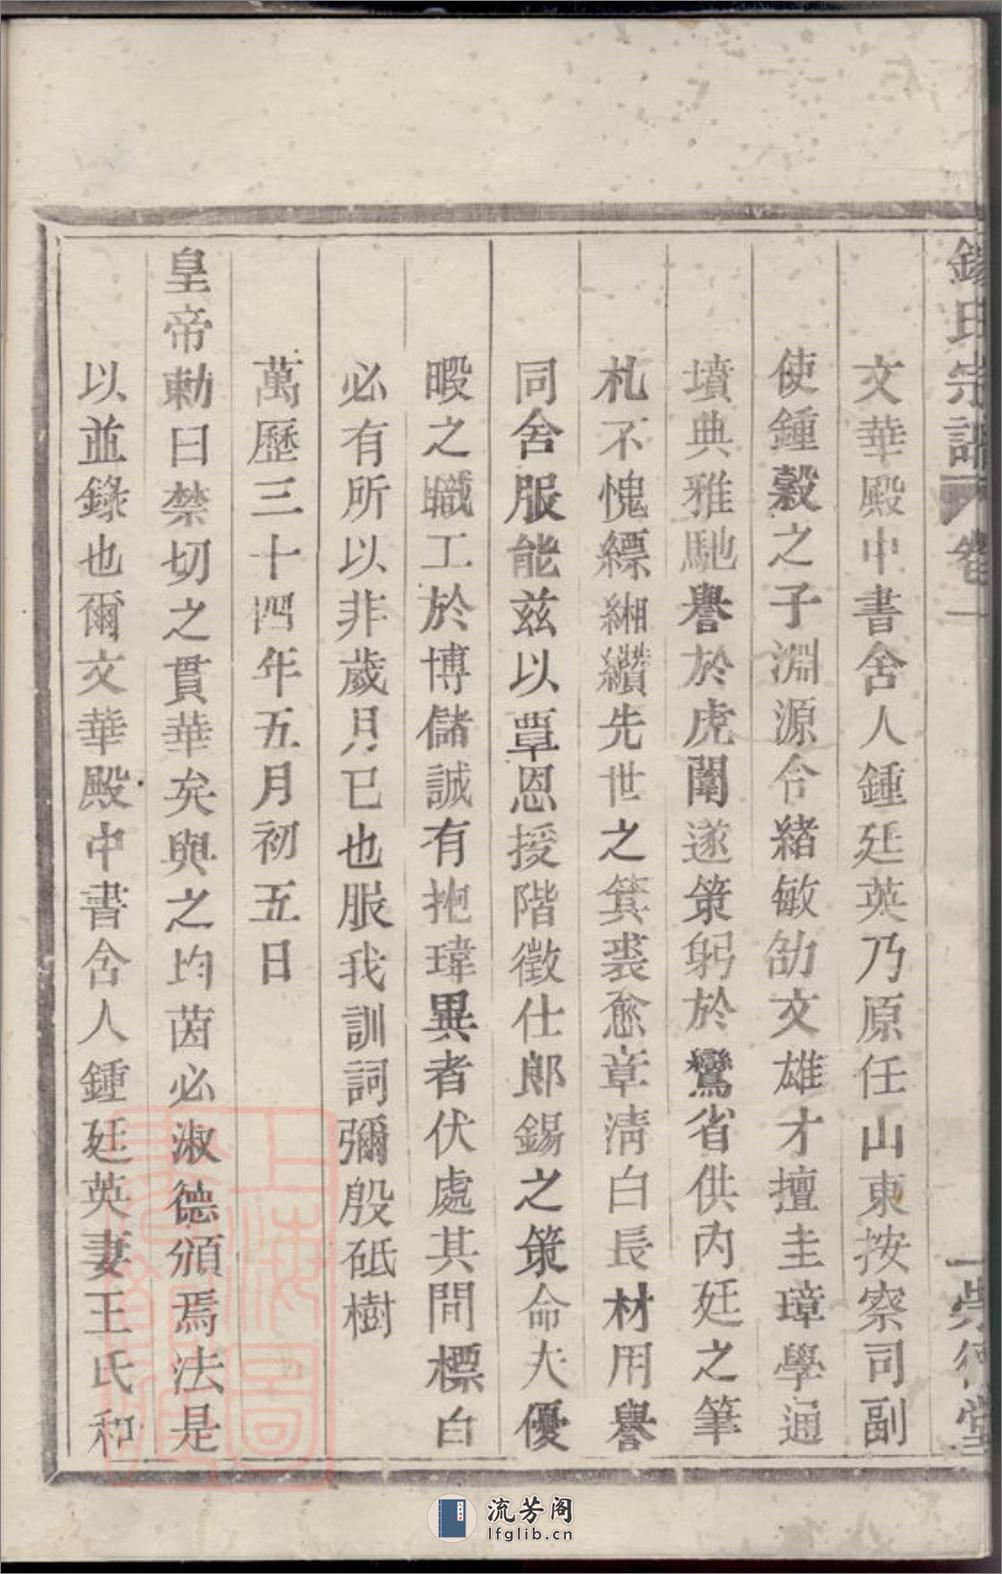 鍾氏宗譜 卷一 一 堂
文華殿中書舍人鍾廷英乃原任山東按察司副
使鍾縠之子淵源令緒敏劭文雄才擅圭璋學通
墳典雅馳譽於虎闈遂策躬於鸞省供內廷之筆
札不愧縹緗纘先世之箕裘愈章淸白長材用譽
同舍服能茲以覃恩授階徵仕郎錫之策命夫優
暇之職工於博儲誠有抱瑋異者伏處其間標白
必有所以非歲月已也服我訓詞彌殷砥樹
萬歷三十四年五月初五日
皇帝勅曰禁切之貫華矣與之均茵必淑德頒焉法是
以並錄也爾文華殿中書舍人鍾廷英妻王氏和
上海圖書館藏
流芳阁
lfglib.cn